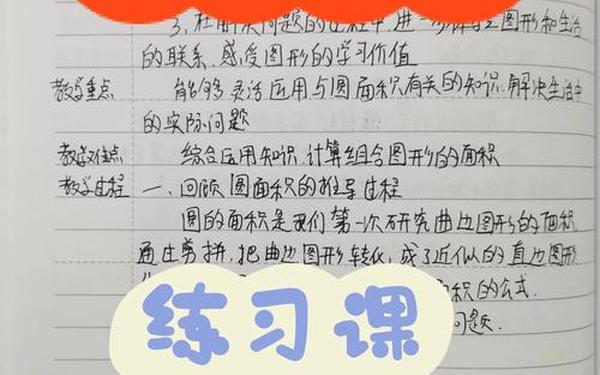 3、在解决问题的过程中,进一步体会图形和生活
的联系,感受图形的学习价值
教学重点 能够灵活应用与圆面积有关的知识,解决生活中
的实际问题
教学难点 综合应用知识,计算组合图形的面积
教学过程 一、回顾圆面积的推导过程
圆的面积是我们第一次研究曲边图形的面积
通过剪拼,把曲边图形转化成了近似的直边图形
面积的公式.
练习课
问题.